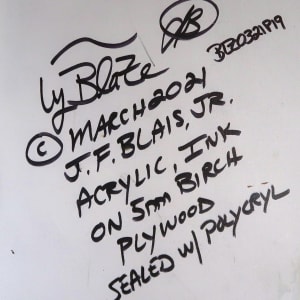 Ly Blaze JB
BLZ0321P19
© MARCH 2021
J.F. BLAIS, JR.
ACRYLIC, INK
ON 5mm BIRCH
PLYWOOD
SEALED W/ POLYCRYL